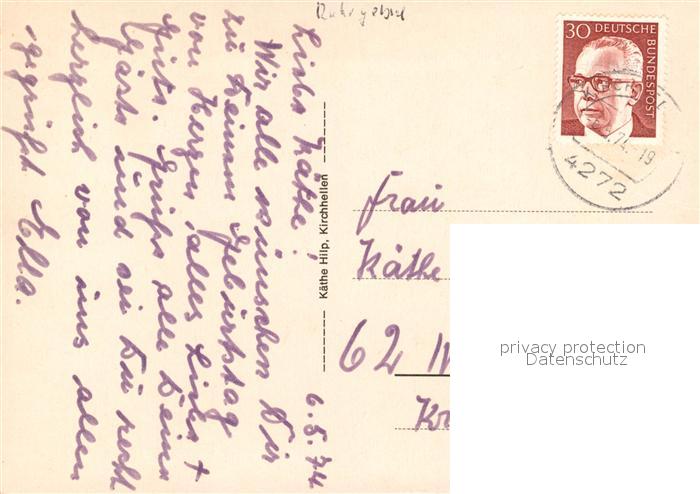 Ruhrgebiet
6.5.74
Liebe Käthe!
Wir alle wünschen Dir
zu Deinem Geburtstag
von Herzen alles Liebe +
Gute. Grüße alle Deine
Gäste und sei Du recht
herzlich von uns allen
gegrüßt Ella.
Käthe Hilp, Kirchhellen
30 DEUTSCHE
BUNDESPOST
74-19
4272
Frau
Käthe
62 W
privacy protection
Datenschutz